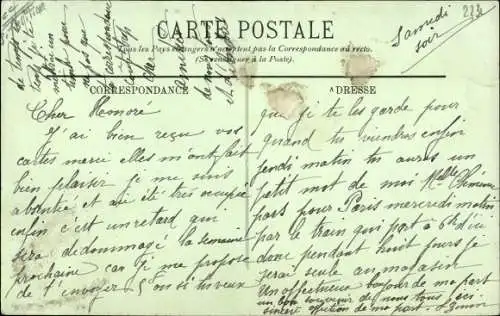 CARTE POSTALE
Tous les Pays étrangers n'acceptent pas la Correspondance au recto.
(Se renseigner à la Poste).
CORRESPONDANCE
ADRESSE
Samedi
soir
Cher Honoré
J'ai bien reçue vos
cartes merci elles m'ont fait
bien plaisir je me suis
absentée et ai été très occupée
enfin c'est un retard qui
sera dedommagé la semaine
prochaine car je me propose
de t'envoyer
que je te les garde pour
quand tu viendras enfin
jeudi matin tu auras un
petit mot de moi Melle
pars pour Paris mercredi matin
par le train qui part à 6h d'ici
donc pendant huit jours je
serai seule au magasin
Un affectueux bonjour de ma part
un bon souvenir de nous tous ici.
sincère affection de ma part.